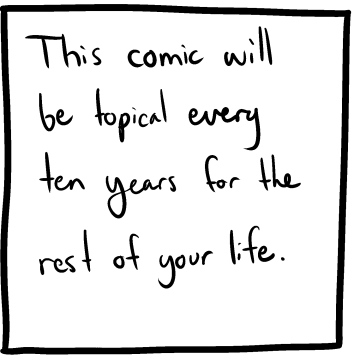 This comic will
be topical every
ten years for the
rest of your life.